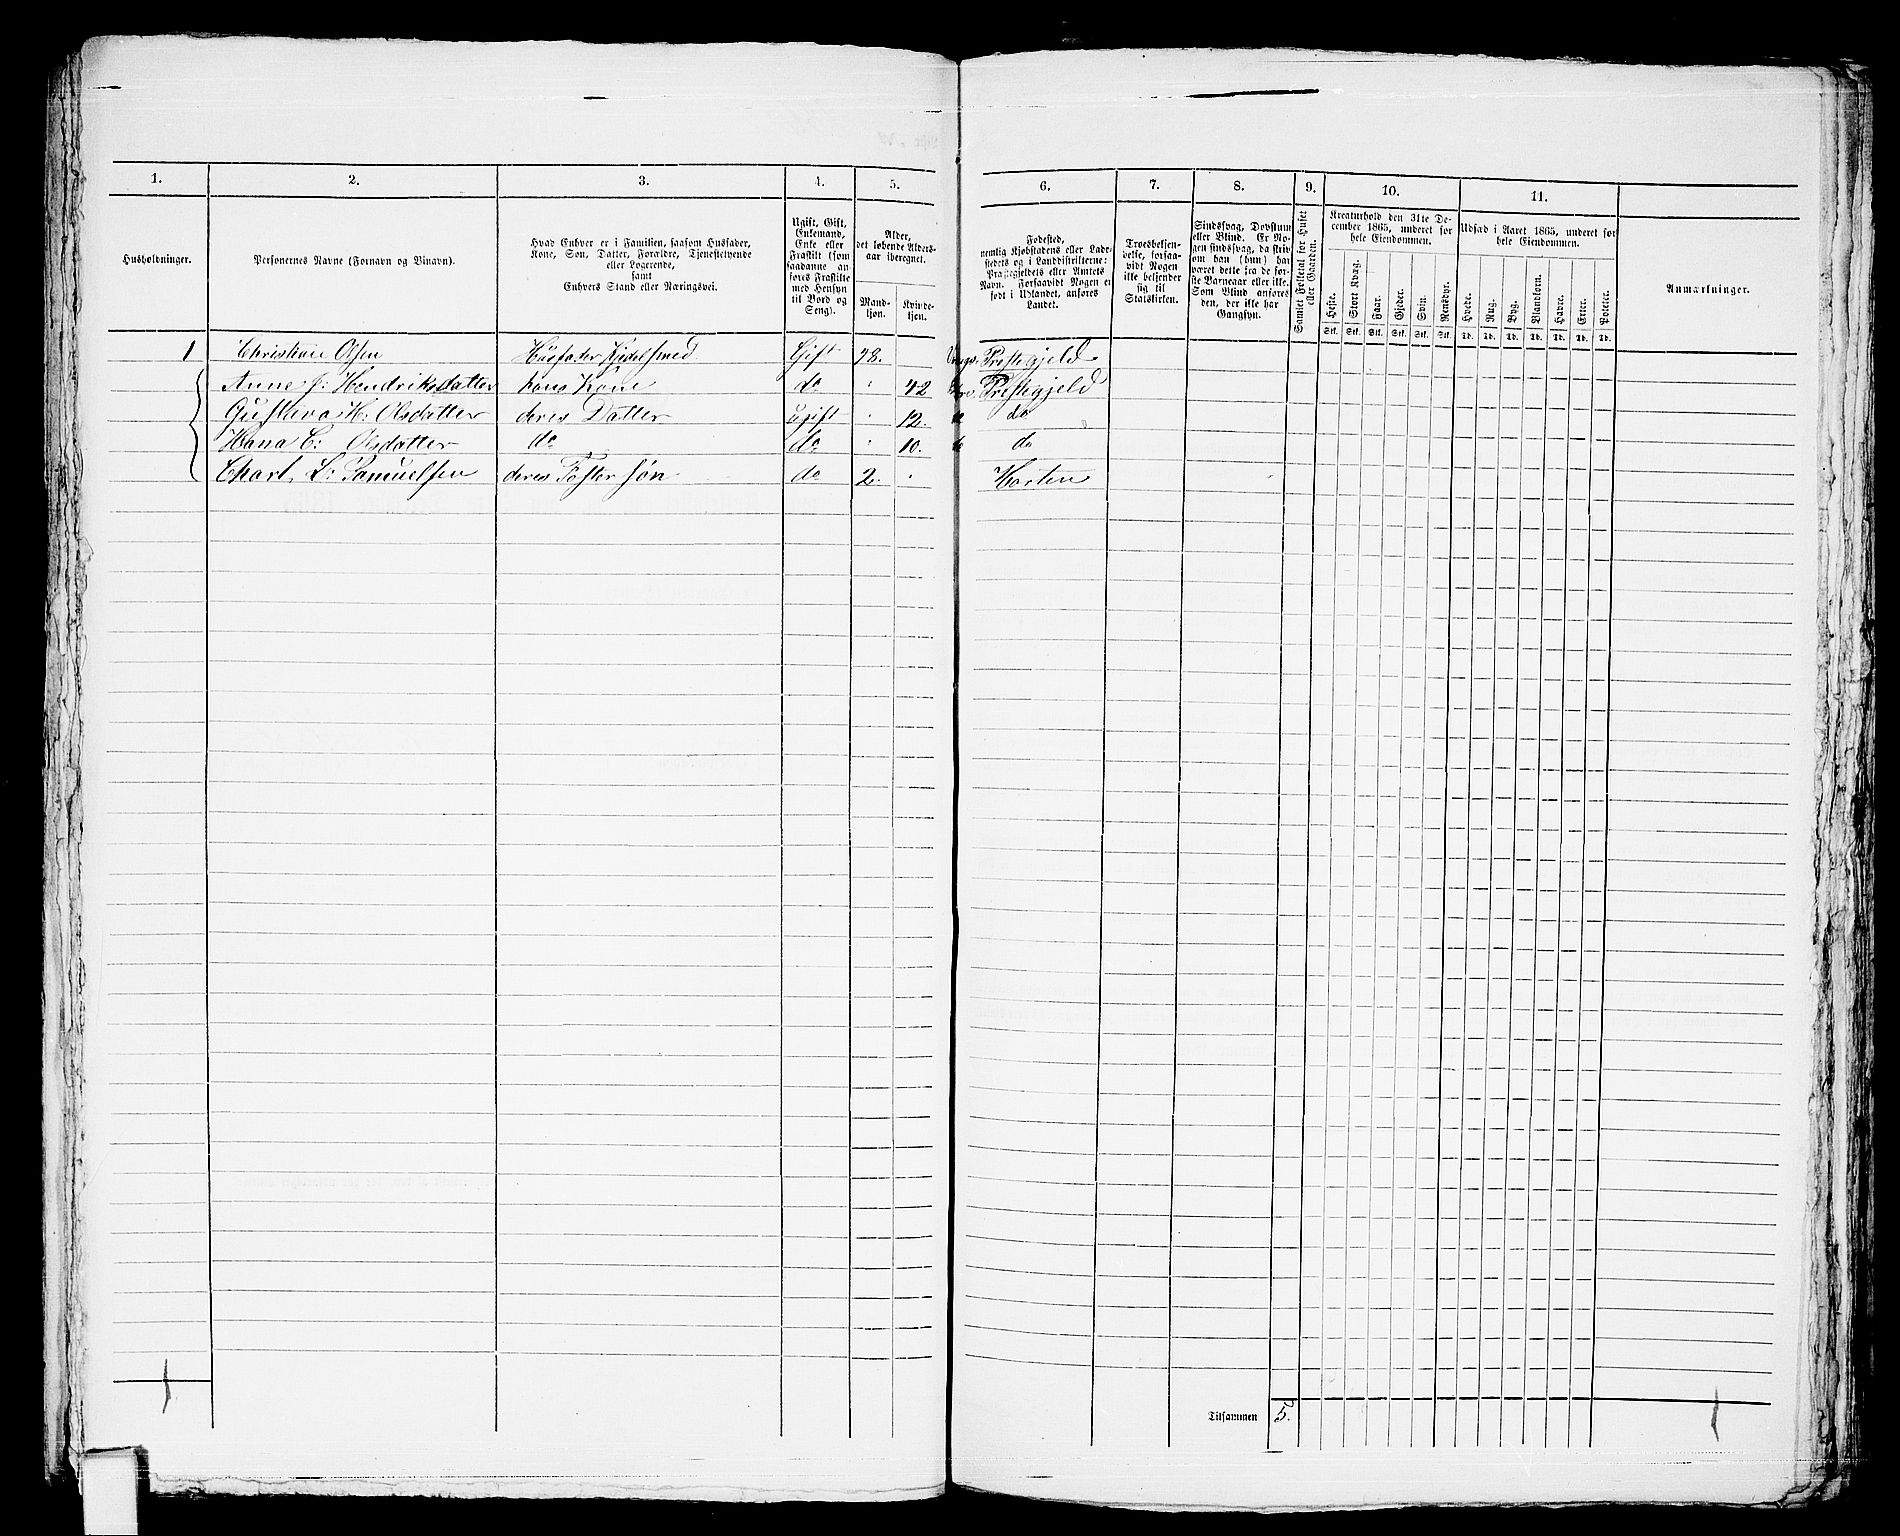 1. 2. 3. 4. 5. 6. 7. 8. 9. 10. 11.
Husholdninger.
Personernes Navne (Fornavn og Binavn).
Hvad Enhver er i Familien, saasom Husfader,
Kone, Søn, Datter, Forældre, Tjenestetyende
eller Logerende,
samt
Enhvers Stand eller Næringsvei.
Ugift, Gift,
Enkemand,
Enke eller
Fraskilt (som
saadanne an-
føres Fraskilte
med Hensyn
til Bord og
Seng).
Alder,
det løbende Alders-
aar iberegnet.
Mand-
kjøn.
Kvinde-
kjøn.
Fødested,
nemlig Kjøbstadens eller Lade-
stedets og i Landdistrikterne:
Præstegjeldets eller Amtets
Navn. Forsaavidt Nogen er
født i Udlandet, anføres
Landet.
Troesbekjen-
delse, forsaa-
vidt Nogen
ikke bekjender
sig til
Statskirken.
Sindssvag, Døvstum
eller Blind. Er No-
gen sindssvag, da skriv
om han (hun) har
været dette fra de før-
ste Barneaar eller ikke.
Som Blind anføres
den, der ikke har
Gangsyn.
Samlet Folketal for Huset
eller Gaarden.
Kreaturhold den 31te De-
cember 1865, anført for
hele Eiendommen.
Heste. Stort Kvæg. Faar. Gjeder. Svin. Rensdyr.
Stk. Stk. Stk. Stk. Stk. Stk.
Udsæd i Aaret 1865, anført for
hele Eiendommen.
Hvede. Rug. Byg. Blandkorn. Havre. Erter. Poteter.
Td. Td. Td. Td. Td. Td. Td.
Anmærkninger.
1 Christian Olsen Husfader Kjedelsmed Gift 48. Præstegjeld
Anne J: Hendriksdatter hans Kone do " 42 Præstegjeld
Gustava H. Olsdatter deres Datter ugift " 12. do
Hana C: Olsdatter do do " 10. do
Charl L: Samuelsen deres Foster søn do 2. " Horten
Tilsammen 5.
1
1